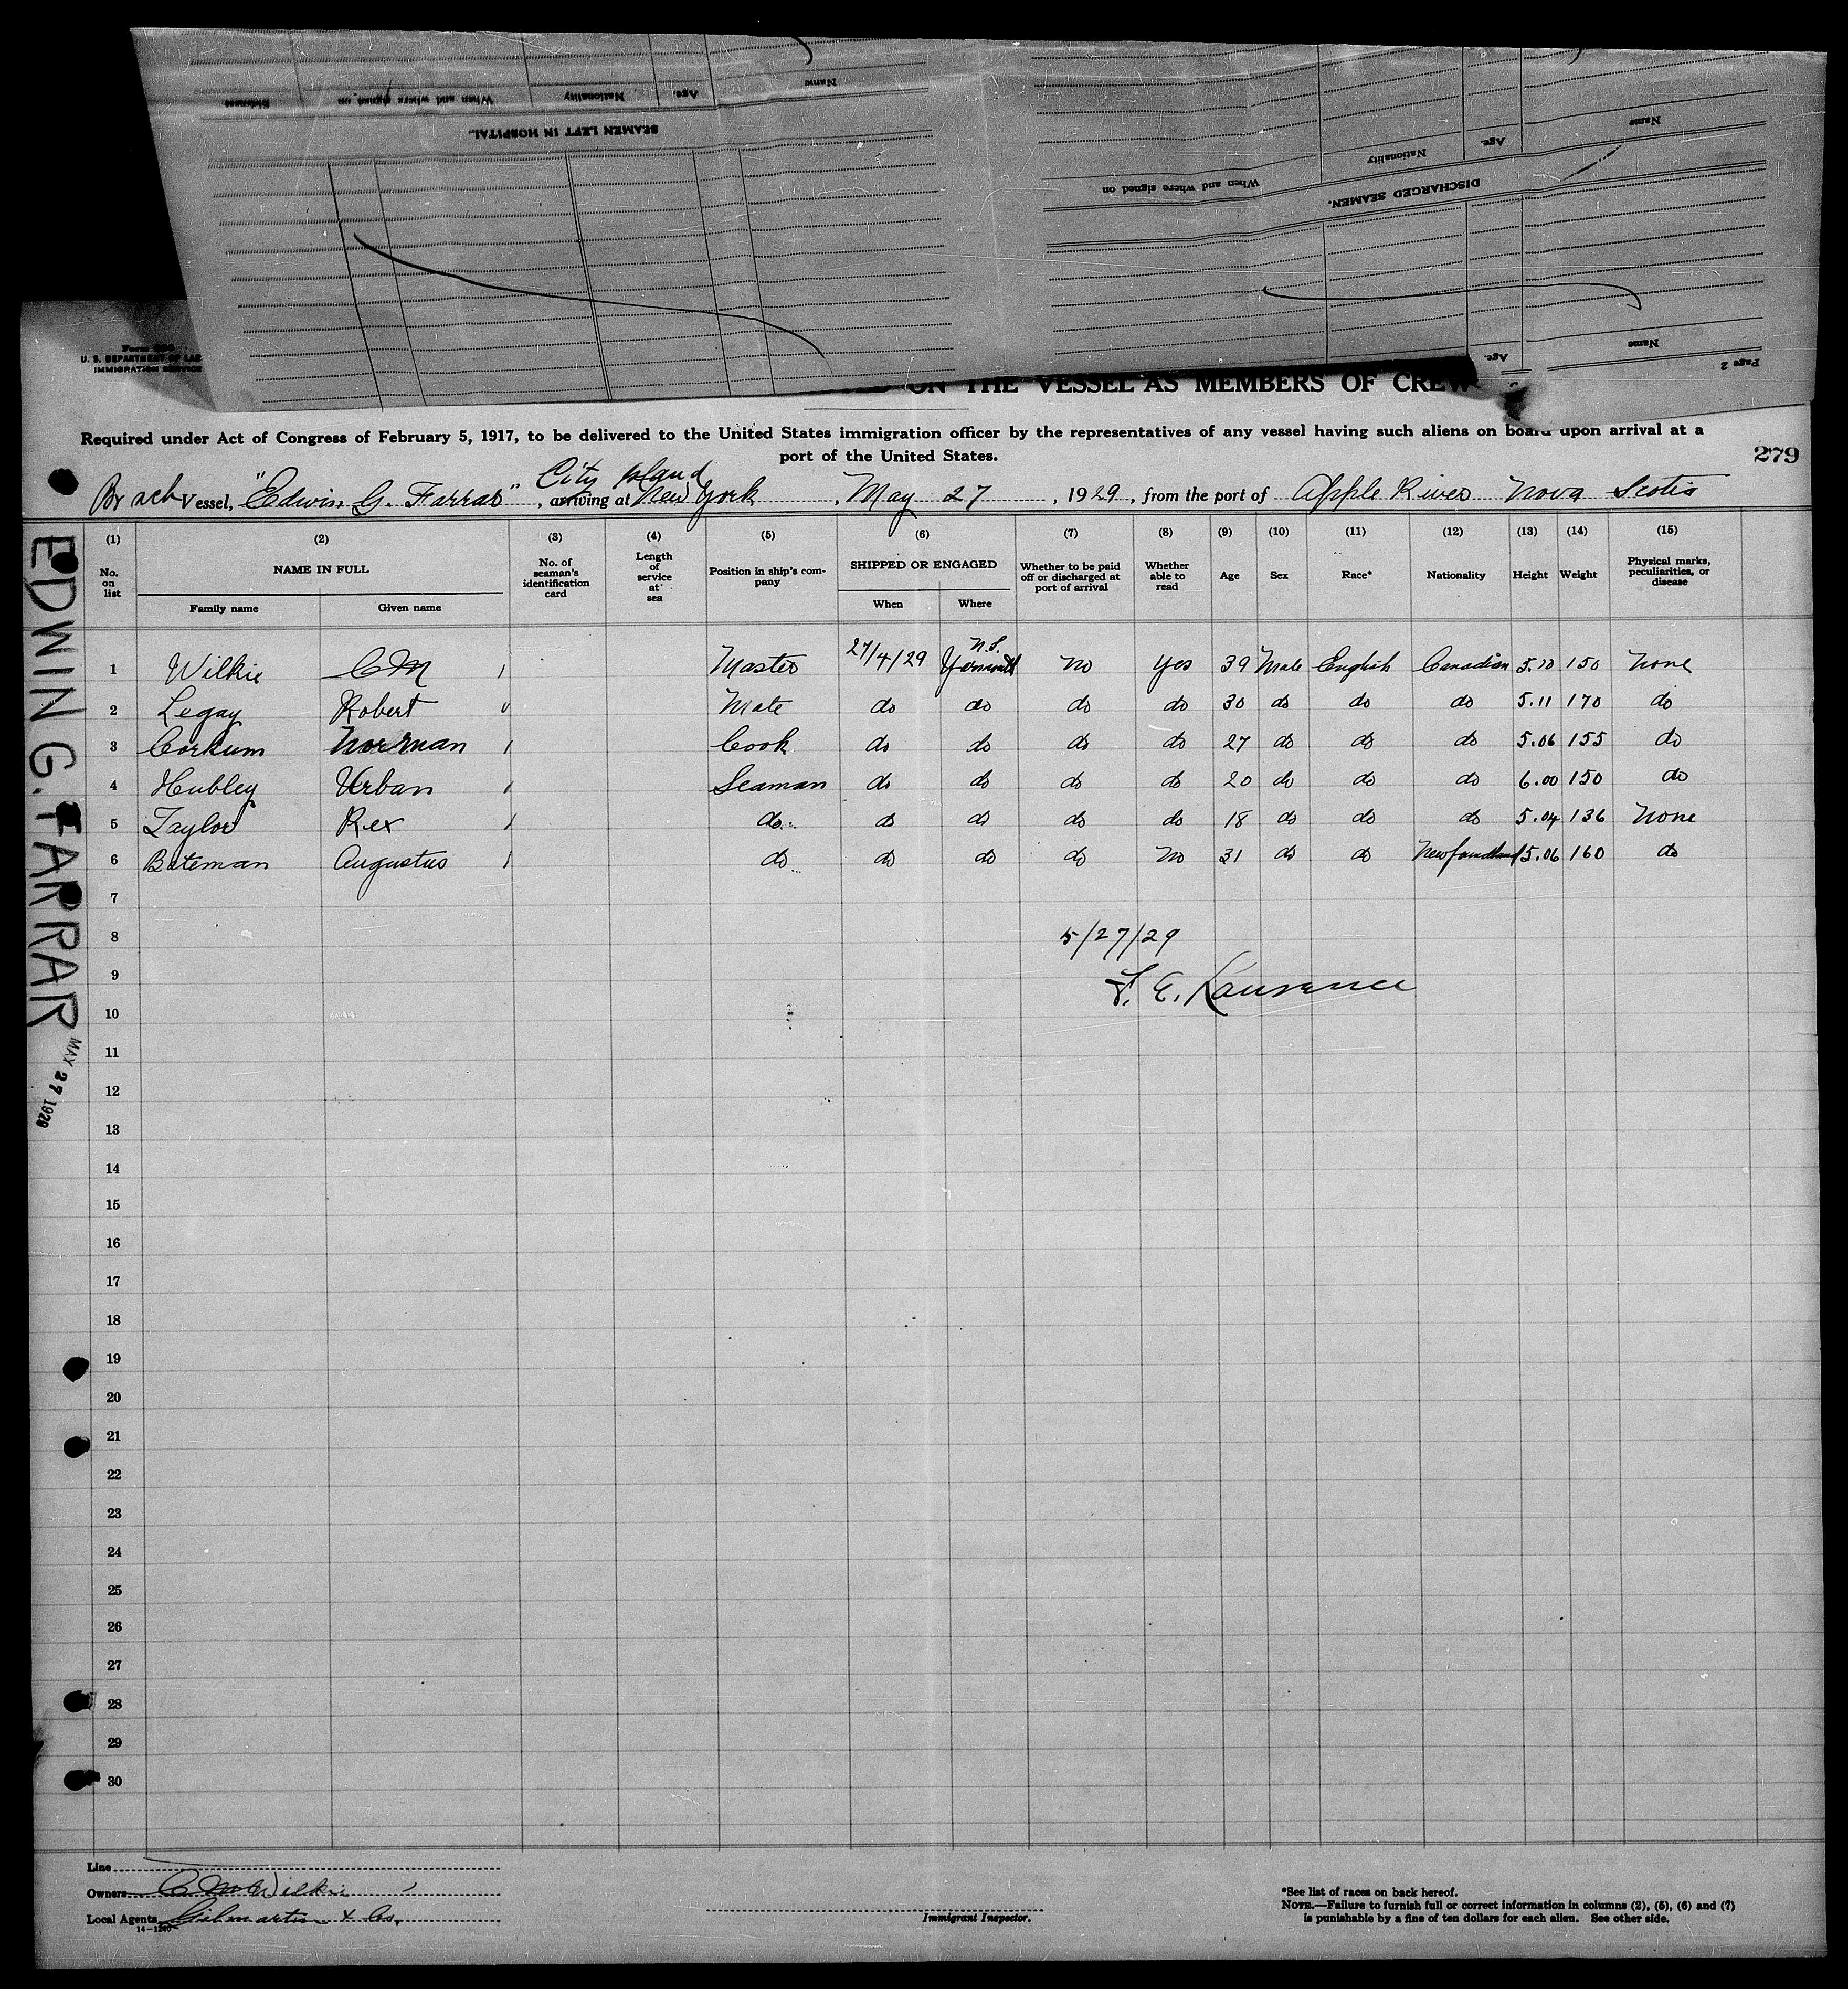 Release. When and where signed on Nationality Age. Name
SEAMEN LEFT IN HOSPITAL.
When and where signed on Nationality Age. Name
DISCHARGED SEAMEN.
Age. Name
Page 2
Form
U. S. DEPARTMENT OF LAB
IMMIGRATION SERVICE
ON THE VESSEL AS MEMBERS OF CREW
Required under Act of Congress of February 5, 1917, to be delivered to the United States immigration officer by the representatives of any vessel having such aliens on board upon arrival at a
port of the United States.
279
City Island
Br sch Vessel, "Edwin G. Farrar", arriving at New York, May 27, 1929, from the port of Apple River Nova Scotia
(1) (2) (3) (4) (5) (6) (7) (8) (9) (10) (11) (12) (13) (14) (15)
No. on list NAME IN FULL No. of seaman's identification card Length of service at sea Position in ship's company SHIPPED OR ENGAGED Whether to be paid off or discharged at port of arrival Whether able to read Age Sex Race* Nationality Height Weight Physical marks, peculiarities, or disease
Family name Given name When Where
N.S.
1 Wilkie C M 1 Master 27/4/29 Yarmouth No Yes 39 Male English Canadian 5.10 150 None
2 Legay Robert Mate do do do do 30 do do do 5.11 170 do
3 Corkum Norman 1 Cook do do do do 27 do do do 5.06 155 do
4 Hubley Urban 1 Seaman do do do do 20 do do do 6.00 150 do
5 Taylor Rex 1 do do do do do 18 do do do 5.04 136 None
6 Bateman Augustus 1 do do do do No 31 do do Newfoundland 5.06 160 do
7
8 5/27/29
9 F. E. Lawrence
10
11
12
13
14
15
16
17
18
19
20
21
22
23
24
25
26
27
28
29
30
EDWIN G. FARRAR
MAY 27 1929
Line
Owners C M Wilkie
Local Agents Gilmartin & Co.
14-1240
Immigrant Inspector.
*See list of races on back hereof.
NOTE.—Failure to furnish full or correct information in columns (2), (5), (6) and (7)
is punishable by a fine of ten dollars for each alien. See other side.